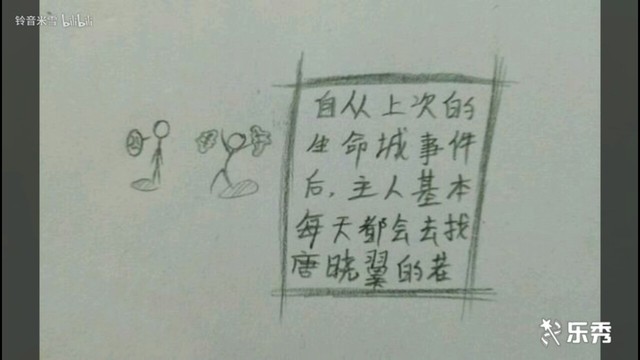 铃音米雪 bilibili
自从上次的
生命城事件
后，主人基本
每天都会去找
唐晓翼的茬
乐秀